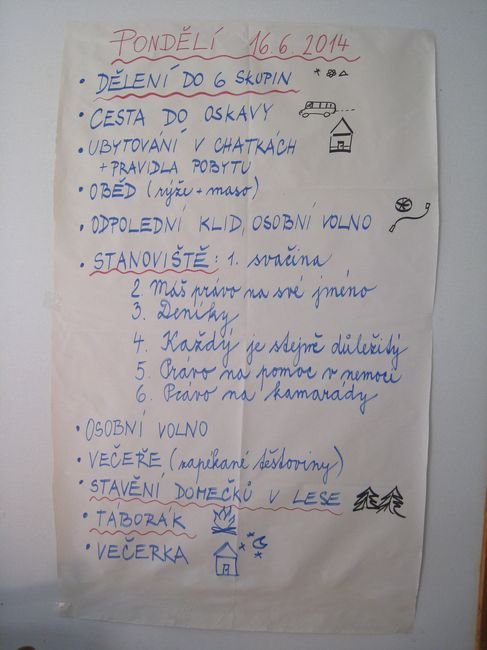 PONDĚLÍ 16.6.2014
• DĚLENÍ DO 6 SKUPIN
• CESTA DO OSKAVY
• UBYTOVÁNÍ V CHATKÁCH
+ PRAVIDLA POBYTU
• OBĚD (rýže + maso)
• ODPOLEDNÍ KLID, OSOBNÍ VOLNO
• STANOVIŠTĚ: 1. svačina
2. Máš právo na své jméno
3. Deníky
4. Každý je stejně důležitý
5. Právo na pomoc v nemoci
6. Právo na kamarády
• OSOBNÍ VOLNO
• VEČEŘE (zapékané těstoviny)
• STAVĚNÍ DOMEČKŮ V LESE
• TÁBORÁK
• VEČERKA